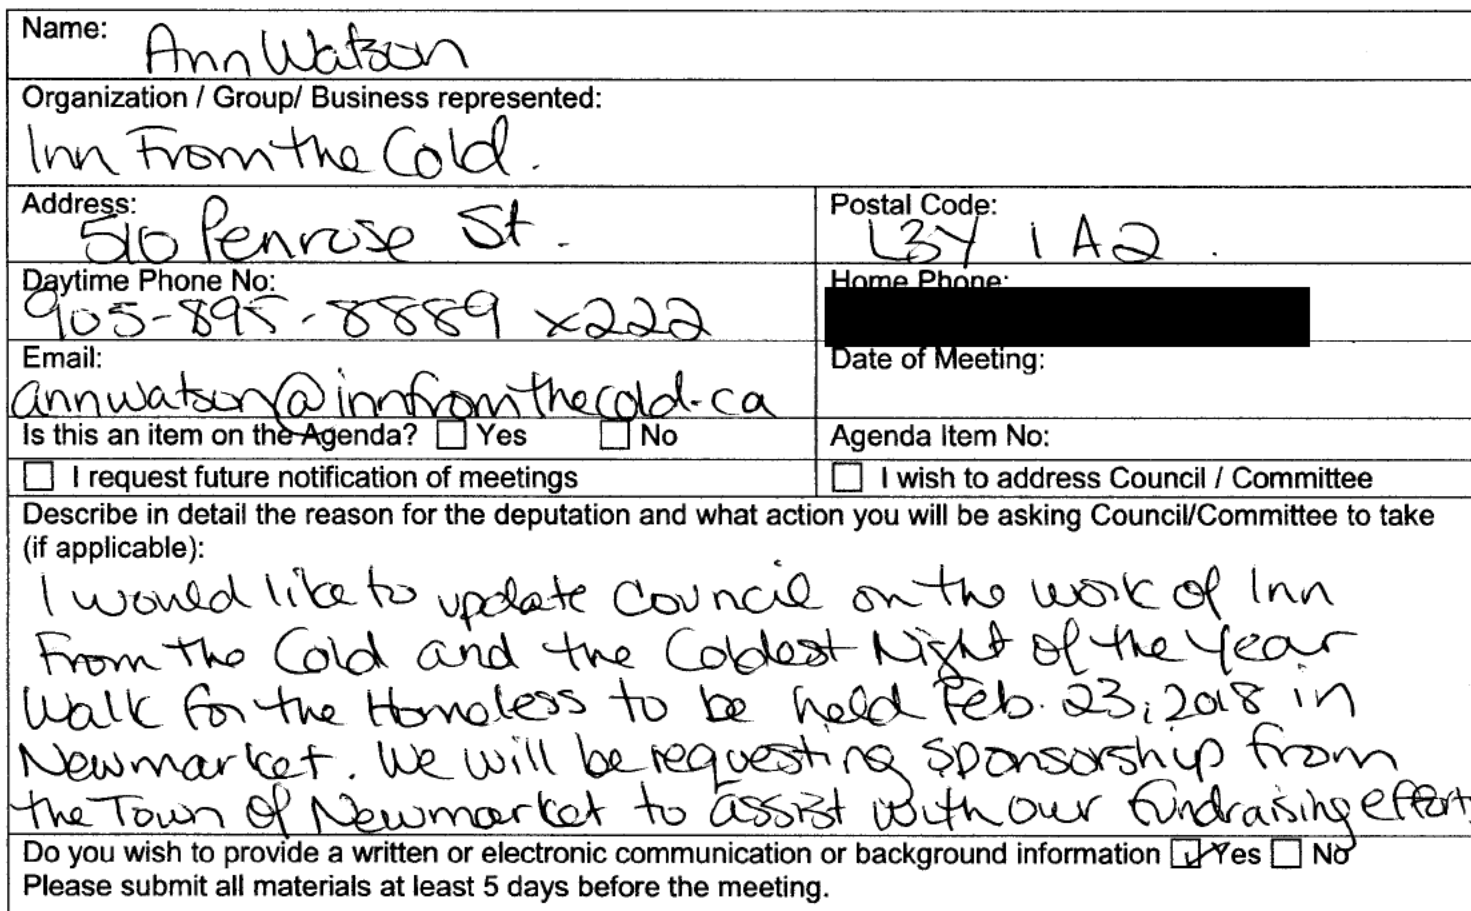 Name: Ann Watson
Organization / Group/ Business represented:
Inn From the Cold.
Address: 510 Penrose St.
Postal Code: L3Y 1A2.
Daytime Phone No: 905-895-8889 x222
Home Phone:
Email: annwatson@innfromthecold.ca
Date of Meeting:
Is this an item on the Agenda? ☐ Yes ☐ No
Agenda Item No:
☐ I request future notification of meetings
☐ I wish to address Council / Committee
Describe in detail the reason for the deputation and what action you will be asking Council/Committee to take
(if applicable):
I would like to update Council on the work of Inn
From the Cold and the Coldest Night of the Year
Walk for the Homeless to be held Feb. 23, 2018 in
Newmarket. We will be requesting sponsorship from
the Town of Newmarket to assist with our fundraising efforts
Do you wish to provide a written or electronic communication or background information ☑ Yes ☐ No
Please submit all materials at least 5 days before the meeting.